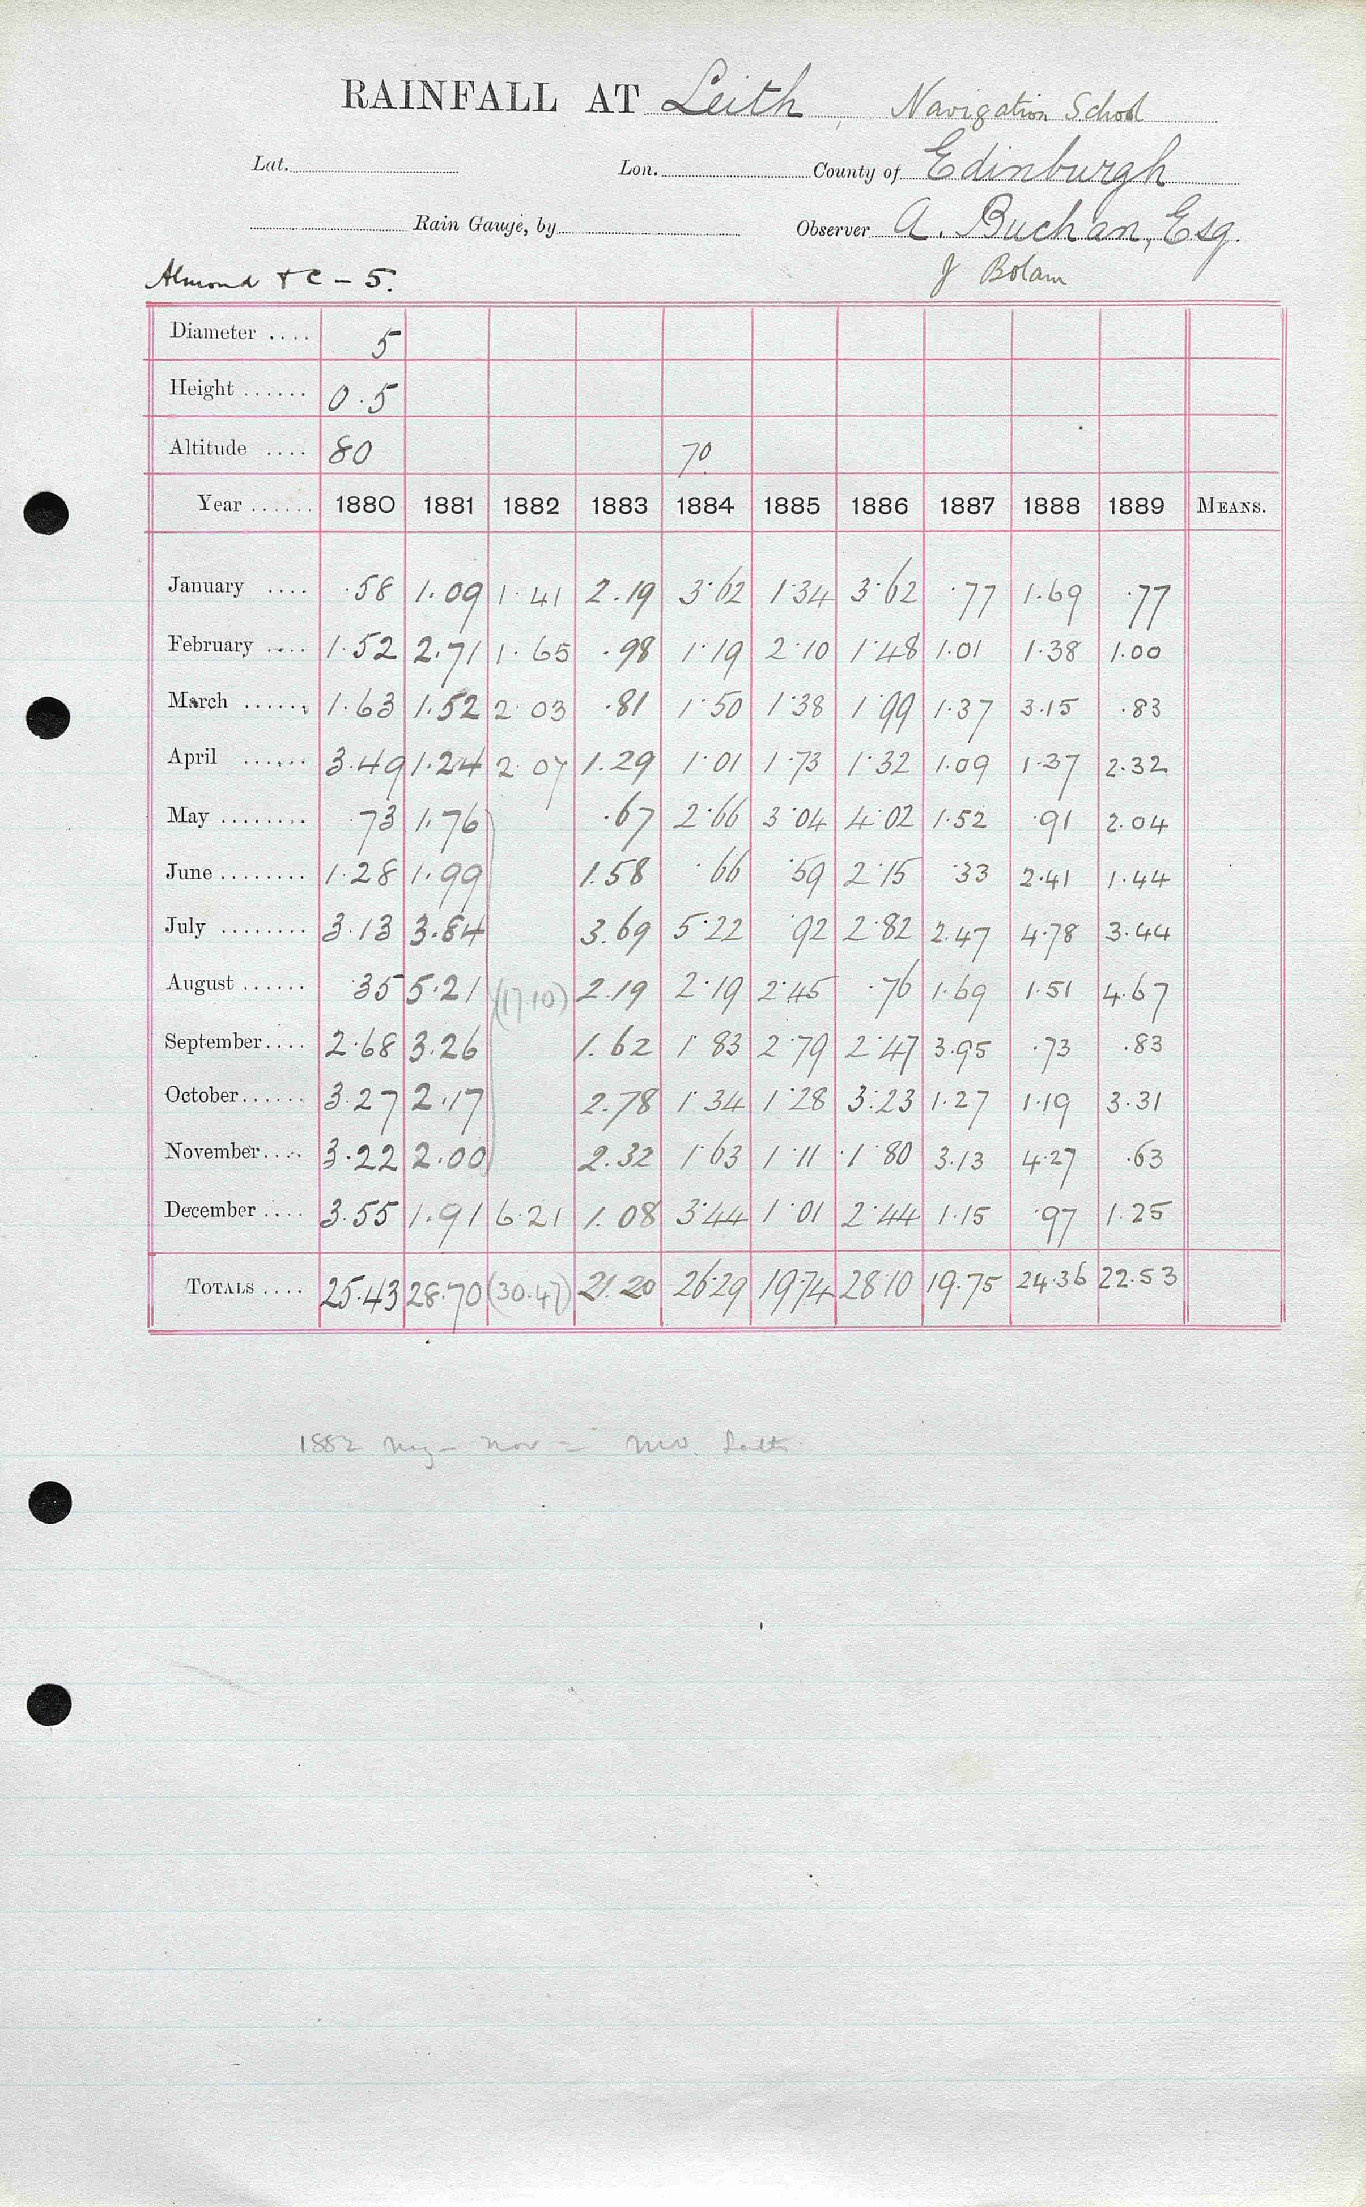 RAINFALL AT Leith, Navigation School
Lat. Lon. County of Edinburgh
Rain Gauge, by Observer A. Buchan, Esq.
Almond & C - 5. J Bolam
Diameter .... 5
Height ...... 0.5
Altitude .... 80 70
Year ...... 1880 1881 1882 1883 1884 1885 1886 1887 1888 1889 MEANS.
January .... .58 1.09 1.41 2.19 3.62 1.34 3.62 .77 1.69 .77
February .... 1.52 2.71 1.65 .98 1.19 2.10 1.48 1.01 1.38 1.00
March ...... 1.63 1.52 2.03 .81 1.50 1.38 1.99 1.37 3.15 .83
April ...... 3.49 1.24 2.07 1.29 1.01 1.73 1.32 1.09 1.37 2.32
May ........ .73 1.76 .67 2.66 3.04 4.02 1.52 .91 2.04
June ........ 1.28 1.99 1.58 .66 .59 2.15 .33 2.41 1.44
July ........ 3.13 3.84 3.69 5.22 .92 2.82 2.47 4.78 3.44
August ...... .35 5.21 (17.10) 2.19 2.19 2.45 .76 1.69 1.51 4.67
September .... 2.68 3.26 1.62 1.83 2.79 2.47 3.95 .73 .83
October ...... 3.27 2.17 2.78 1.34 1.28 3.23 1.27 1.19 3.31
November .... 3.22 2.00 2.32 1.63 1.11 1.80 3.13 4.27 .63
December .... 3.55 1.91 6.21 1.08 3.44 1.01 2.44 1.15 .97 1.25
TOTALS .... 25.43 28.70 (30.47) 21.20 26.29 19.74 28.10 19.75 24.36 22.53
1882 May - Nov =